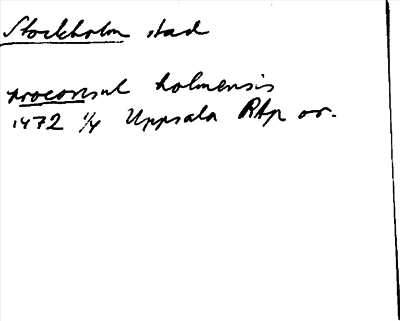 Stockholm stad
proconsul holmensis
1472 1/4 Uppsala RAp or.